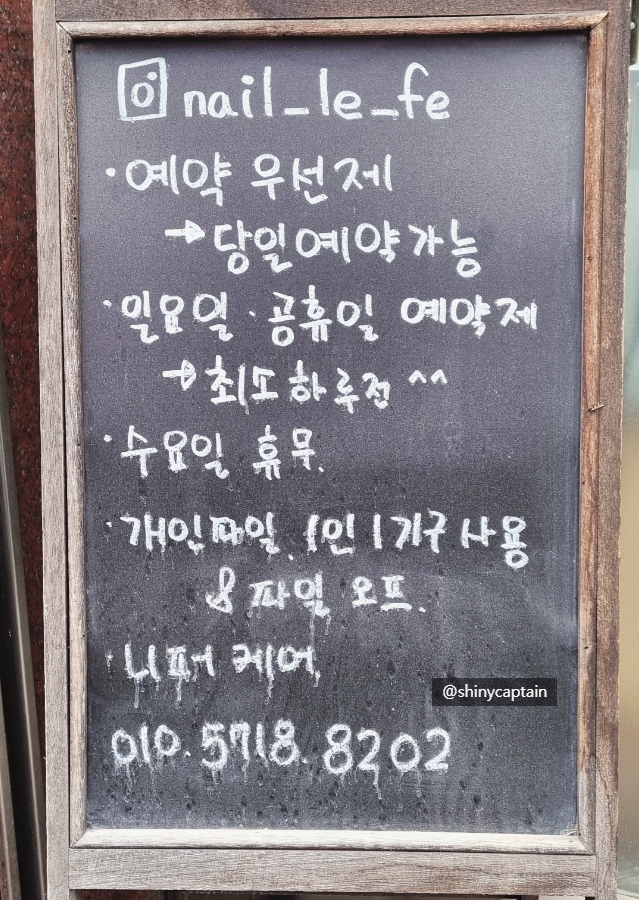 nail_le_fe
· 예약 우선제
→ 당일예약가능
· 일요일 · 공휴일 예약제
→ 최소하루전 ^^
· 수요일 휴무.
· 개인파일. 1인 1기구 사용
& 파일 오프.
· 니퍼 케어.
@shinycaptain
010. 5718. 8202